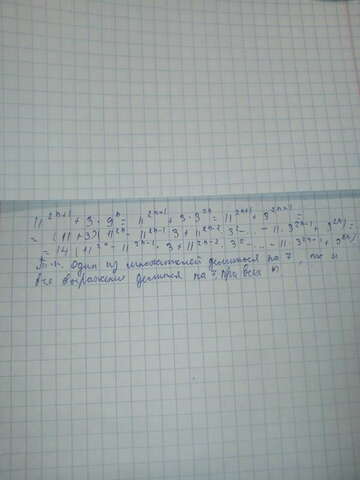 11^{2n+1} + 3 · 9^n = 11^{2n+1} + 3 · 3^{2n} = 11^{2n+1} + 3^{2n+1} =
= (11 + 3)(11^{2n} - 11^{2n-1} · 3 + 11^{2n-2} · 3^2 - ... - 11 · 3^{2n-1} + 3^{2n}) =
= 14(11^{2n} - 11^{2n-1} · 3 + 11^{2n-2} · 3^2 - ... - 11 · 3^{2n-1} + 3^{2n})
Т.к. один из множителей делится на 7, то и
все выражение делится на 7 при всех n